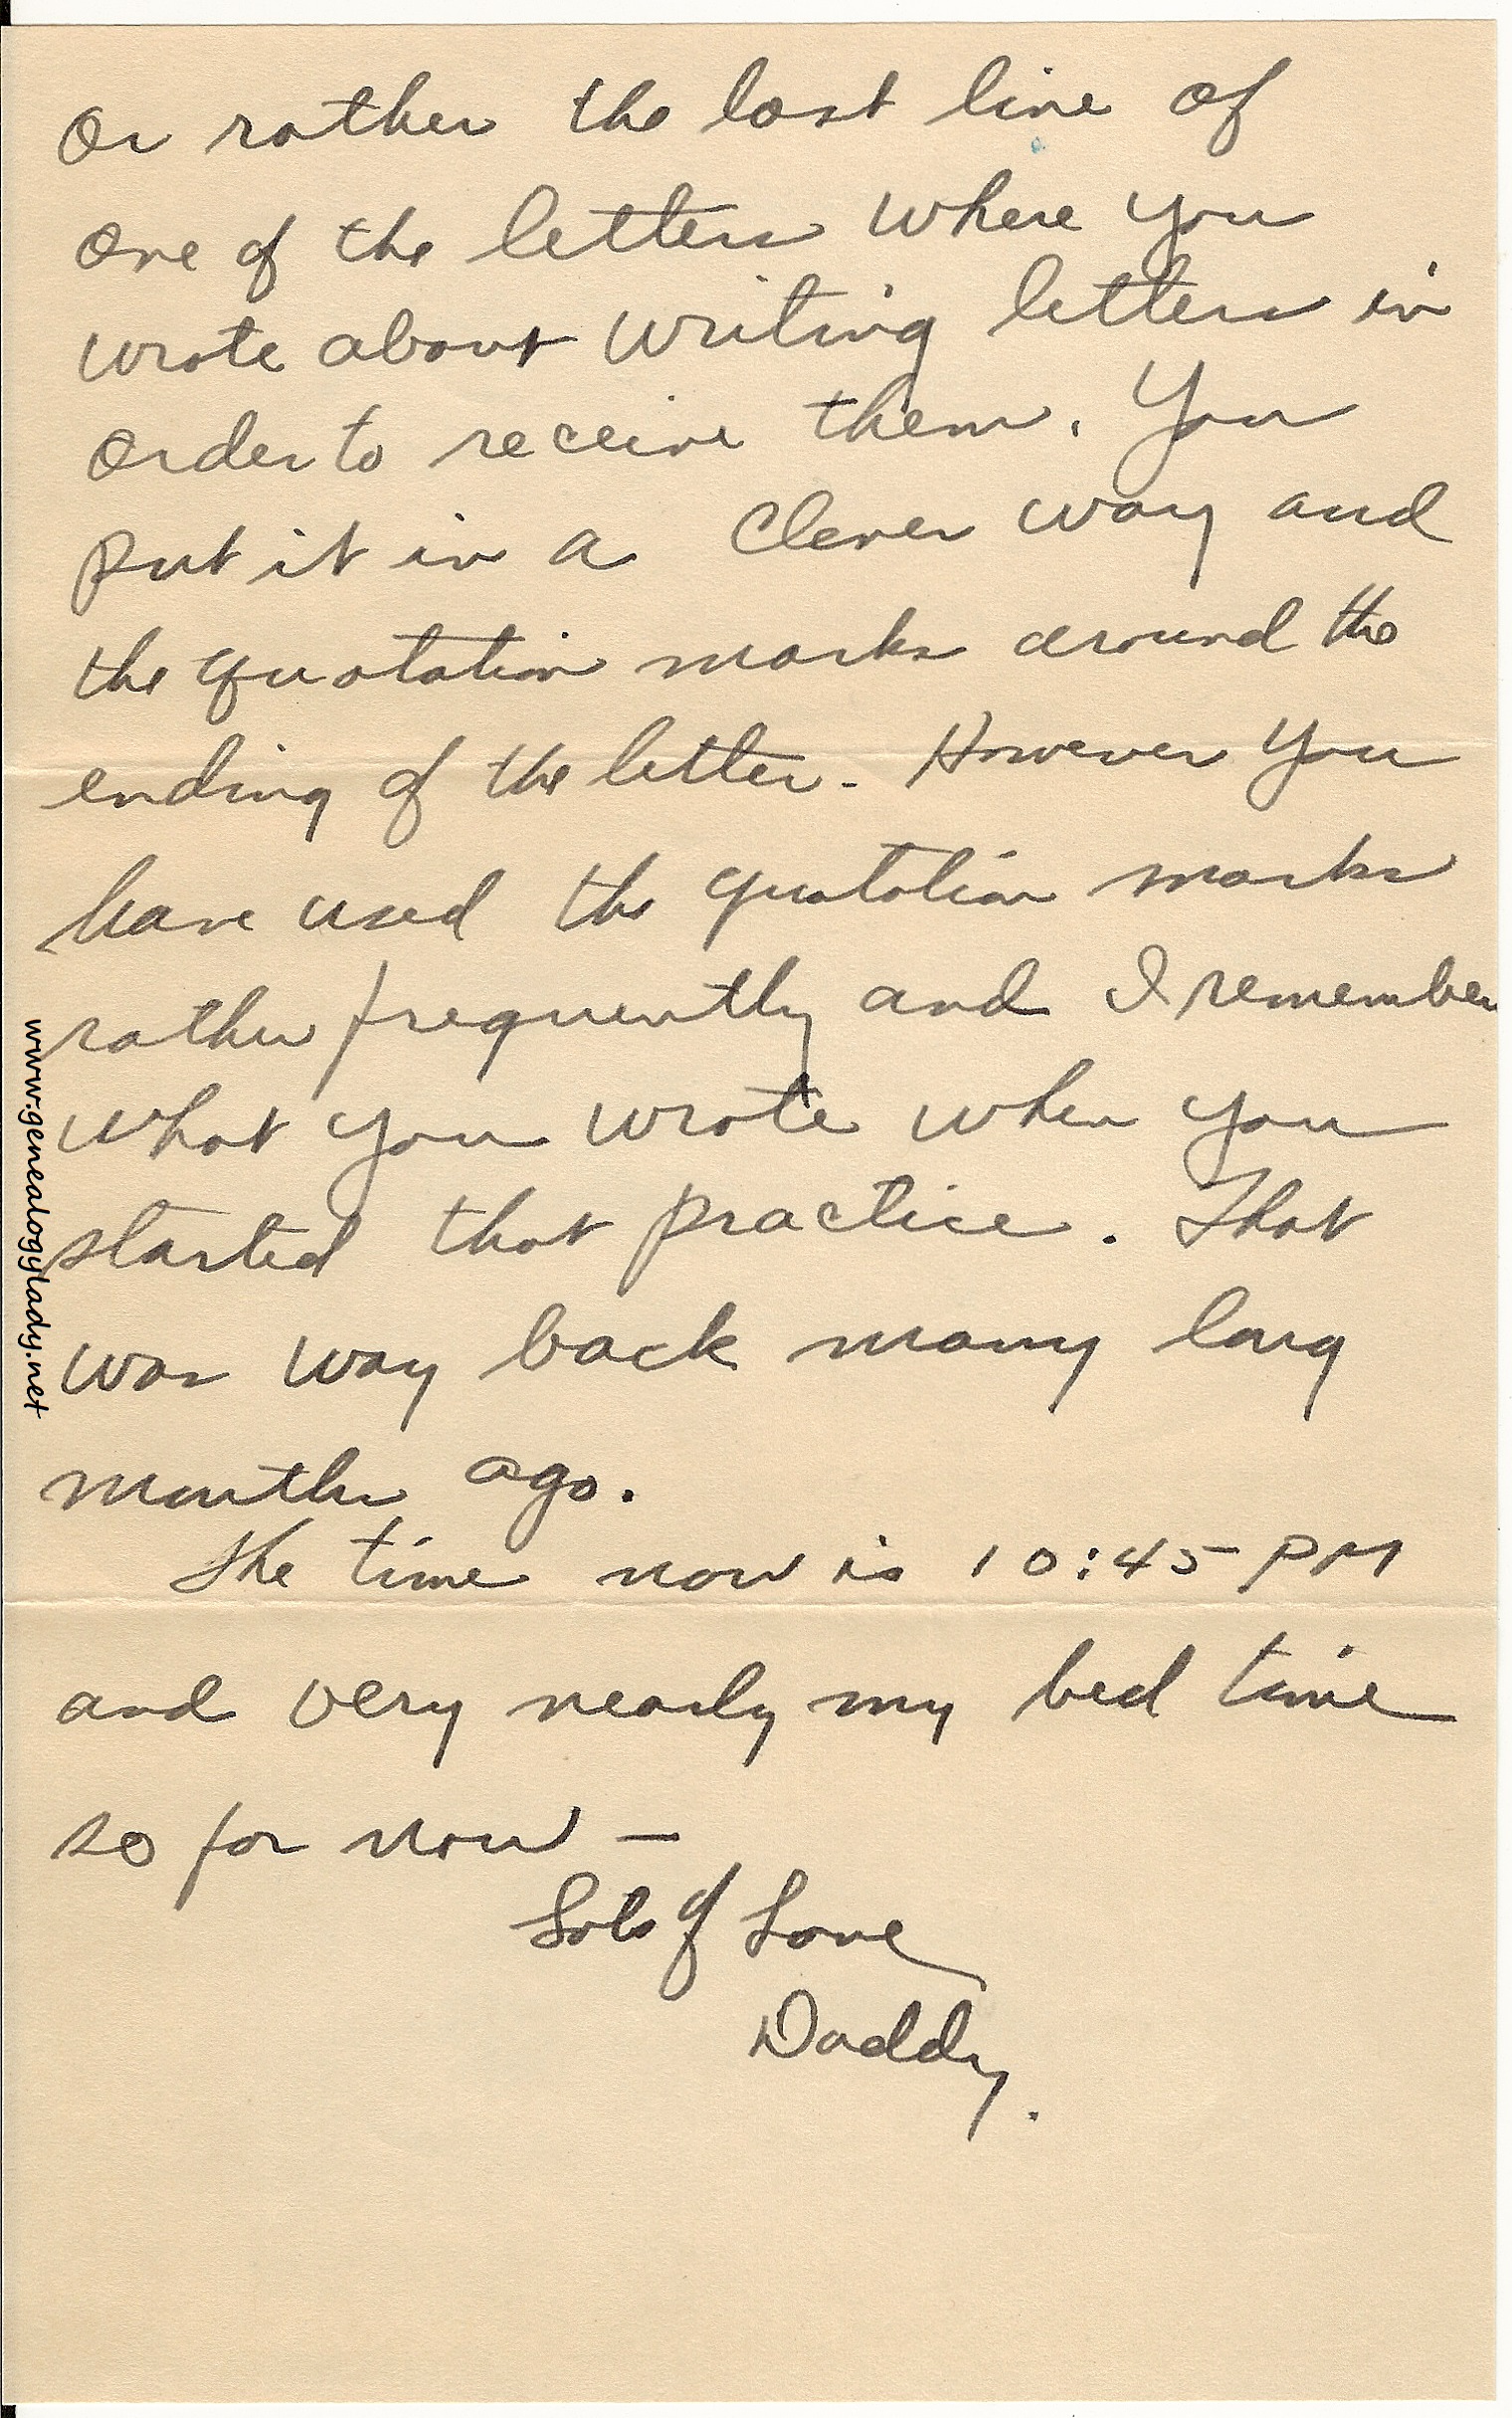 or rather the last line of
one of the letters where you
wrote about writing letters in
order to receive them. You
put it in a clever way and
the quotation marks around the
ending of the letter. However you
have used the quotation marks
rather frequently and I remember
what you wrote when you
started that practice. That
was way back many long
months ago.
The time now is 10:45 PM
and very nearly my bed time
so for now —
Lots of Love
Daddy.
www.genealogylady.net